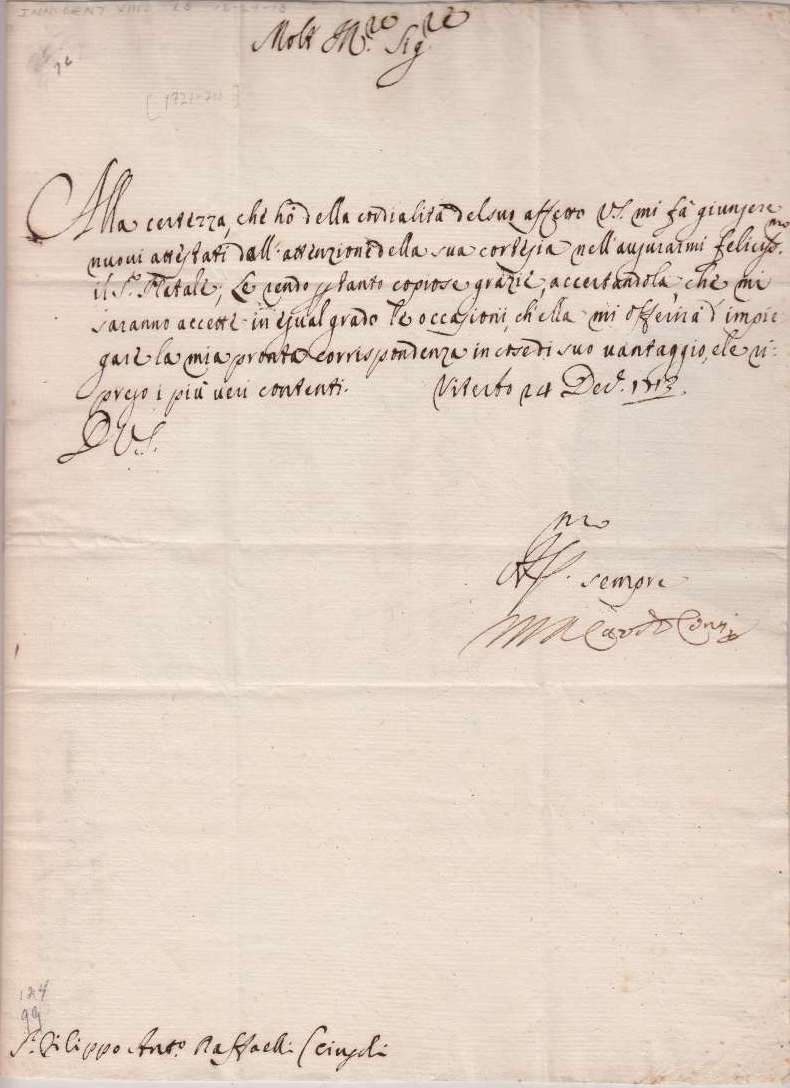 INNOCENT XIII LS 12-24-13
[1721-24]
Molt' Ill.re Sig.re
Alla certezza, che hò della cordialità del suo affetto VS. mi fà giungere
nuovi attestati dell'attenzione della sua cortesia nell'augurarmi felicis.mo
il S.o Natale; Le rendo ptanto copiose grazie, accertandola che mi
saranno accette in egual grado le occasioni, ch'ella mi offerirà d'impie
gare la mia pronta corrispondenza in cose di suo vantaggio, e le ri-
prego i più veri contenti. Viterbo 24 Dec.e 1713.
D VS.
Aff.mo sempre
M A Card. Conti
124
99
S.r Filippo Ant.o Raffaelli Cingoli